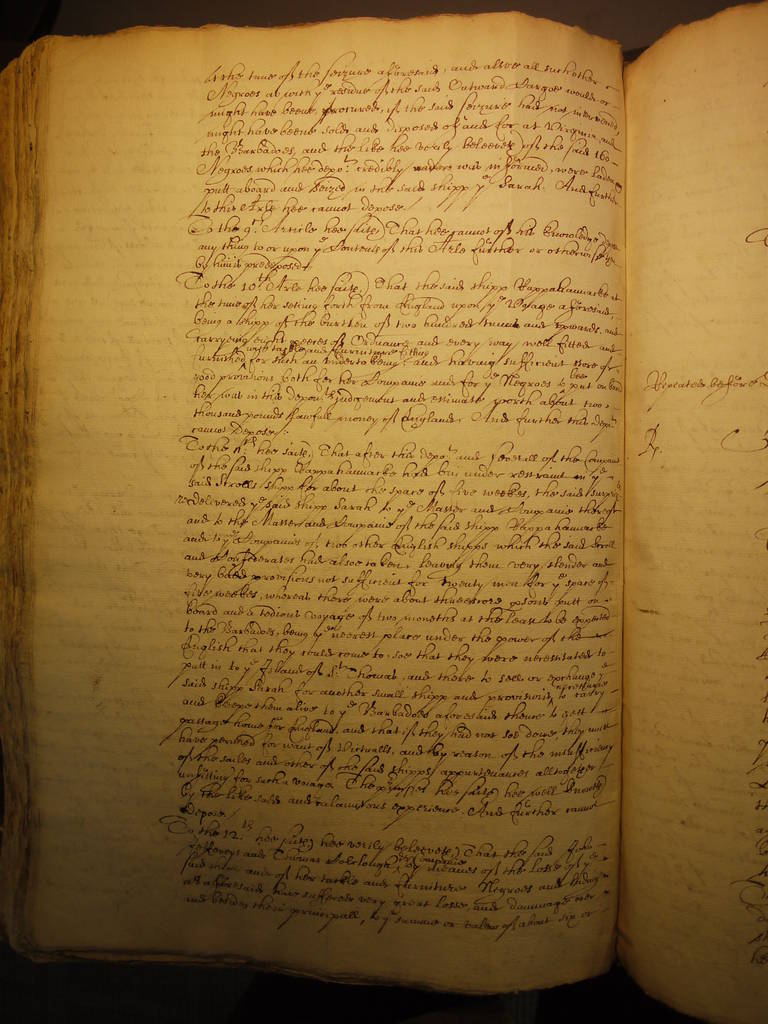 the time of the seizure aforesaid, and alsoe all such other
Negroes as with ye residue of the said Outward Cargoe would or
might have beene procured, if the said seizure had not intervened,
might have beene sold and disposed of and for at Virginia, and
the Barbadoes, and the like hee verily beleeveth of the said 160
Negroes which hee depot. credibly was informed, were laden
putt aboard and seized in the said shipp ye Sarah. And further
to this Arle hee cannot depose
To the 9th. Article hee saith That hee cannot of his knowledge depose
any thing to or upon ye Contents of this Arle further or otherwise then
by him is predeposed
To the 10th Arle hee saith, That the said shipp Rappahannacke at
the time of her setting forth from England upon ye Voyage aforesaid,
being a shipp of the burthen of two hundred tunns and upwards, and
carrying eight peeces of Ordnance and every way well fitted and
with tackle and furniture fitting
furnished for such an undertakeing and having sufficient store of
bee
good provisions both for her Companie and for ye Negroes to putt on board
her, was in this depots. judgement and estimate worth about two
thousand pounds lawfull money of England. And further this depot.
cannot Depose.
To the 11th hee saith, That after this depot. and severall of the Companie
of the said shipp Rappahannacke had bin under restraint in ye
said shipp for about the space of five weekes, the said
redelivered ye said shipp Sarah to ye Master and Companie thereof
and to the Master and Companie of the said shipp Rappahannacke
and to ye Companies of two other English shipps which the said
and Confederates had alsoe taken, leaving them very slender and
very badd provisions not sufficient for twenty men for ye space of
five weekes, whereas there were about threescore psons putt on
board and a tedious voyage of two moneths at the least to be expected
to the Barbadoes, being ye neerest place under the power of the
English that they could come to, soe that they were necessitated to
putt in to ye Island of St. Thomas, and there to sell or exchange ye
said shipp Sarah for another small shipp and provisions, to carry
and keepe them alive to ye Barbadoes aforesaid thence to gett
passage home for England, and that if they had not soe done, they must
have perished for want of Victualls, and by reason of the insufficiency
of the sailes and other of the said shipps appurtenances alltogether
unfitting for such a voyage. The pmisses hee saith hee well knoweth
by the like said and calamitous experience. And further cannot
Depose
To the 12th. hee saith, hee verily beleeveth That the said John
Jeffereys and Thomas Colclough by meanes of the losse of ye
and Companie
said shipp and of her tackle and furniture Negroes and lading
as aforesaid have suffered very great losse and dammage over
and besides their principall, to ye summe or valew of about six or
Repeated before